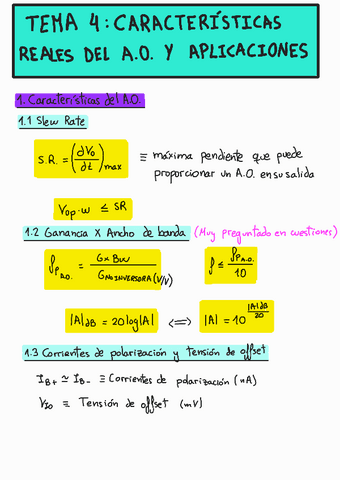 TEMA 4: CARACTERÍSTICAS
REALES DEL A.O. Y APLICACIONES
1. Características del A.O.
1.1 Slew Rate
S.R. = (∂Vo/∂t)max ≡ máxima pendiente que puede
proporcionar un A.O. en su salida
Vop·w ≤ SR
1.2 Ganancia X Ancho de banda (Muy preguntado en cuestiones)
fP A.O. = G x BW / G NO INVERSORA (V/V) f ≤ fP A.O. / 10
|A|dB = 20log|A| <=> |A| = 10^(|A|dB/20)
1.3 Corrientes de polarización y tensión de offset
IB+ ≃ IB- ≡ Corrientes de polarización (nA)
VIO ≡ Tensión de offset (mV)